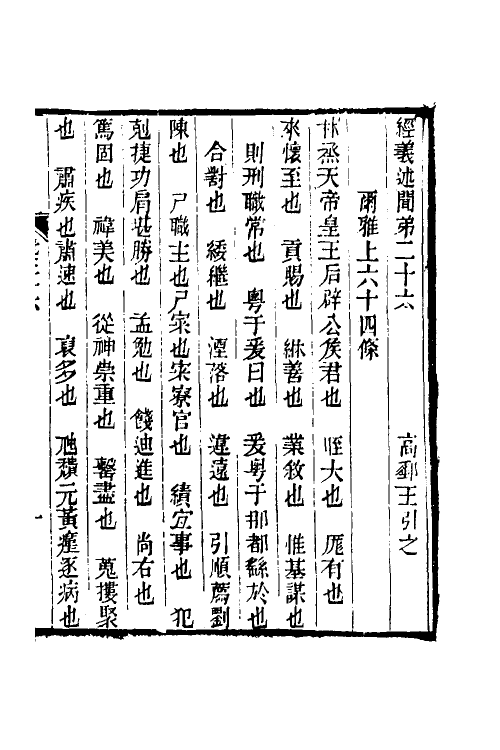 經義述聞第二十六　高郵王引之
爾雅上六十四條
林烝天帝皇王后辟公侯君也　晊大也　厖有也
來懷至也　貢賜也　綝善也　業敘也　惟基謀也
則刑職常也　粵于爰曰也　爰粵于那都繇於也
合對也　緌繼也　湮落也　違遠也　引順薦劉
陳也　尸職主也尸寀也寀寮官也　績宜事也　犯
剋捷功肩堪勝也　孟勉也　餞迪進也　尚右也
篤固也　禕美也　從神崇重也　罄盡也　蒐摟聚
也　肅疾也肅速也　裒多也　虺穨元黃瘽逐病也